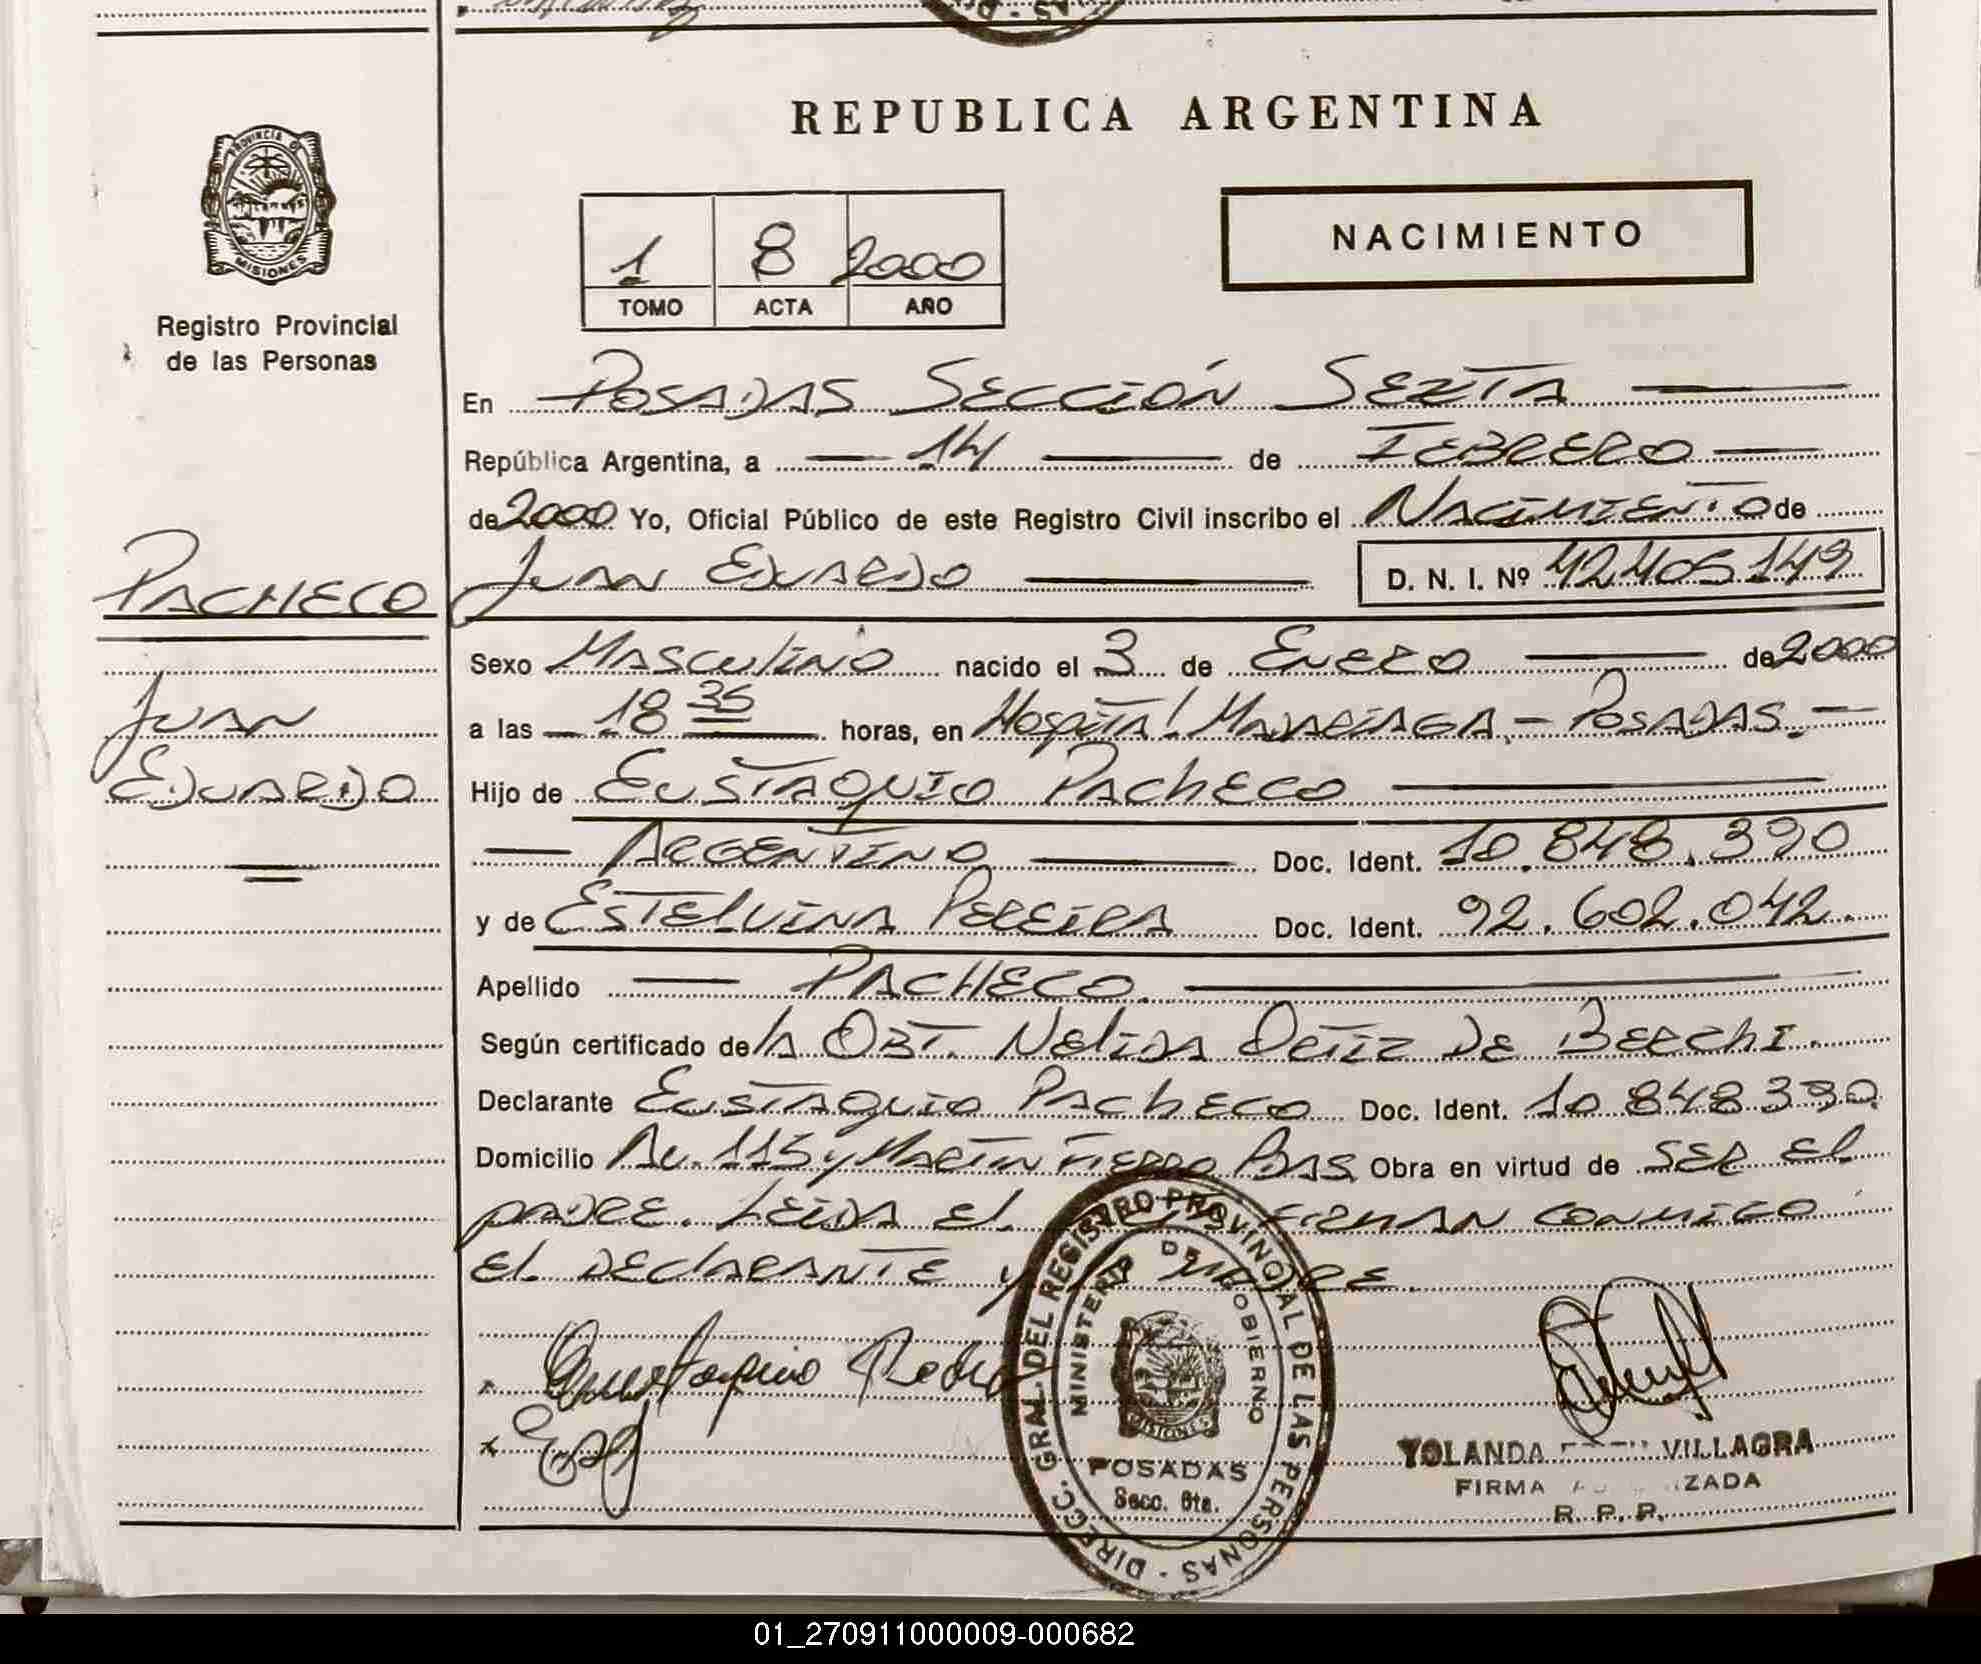 REPUBLICA ARGENTINA
PROVINCIA DE
MISIONES
Registro Provincial
de las Personas
1 8 2000
TOMO ACTA AÑO
NACIMIENTO
En POSADAS SECCIÓN SEXTA
República Argentina, a 14 de FEBRERO
de 2000 Yo, Oficial Público de este Registro Civil inscribo el NACIMIENTO de
JUAN EDUARDO D. N. I. Nº 42.405.149
PACHECO
JUAN
EDUARDO
Sexo MASCULINO nacido el 3 de ENERO de 2000
a las 18 35 horas, en Hospital MADARIAGA - POSADAS.
Hijo de EUSTAQUIO PACHECO
ARGENTINO Doc. Ident. 10.848.390
y de ESTELVINA PEREIRA Doc. Ident. 92.602.042.
Apellido PACHECO.
Según certificado de la OBT. NELIDA ORTIZ DE BERCHI.
Declarante EUSTAQUIO PACHECO Doc. Ident. 10 848 390
Domicilio Av. 115 y MARTIN FIERRO Pdas Obra en virtud de SER El
PADRE. LEIDA El FIRMAN CONMIGO
El DECLARANTE y LA MADRE.
Eustaquio
DIRECC. GRAL. DEL REGISTRO PROVINCIAL DE LAS PERSONAS
MINISTERIO DE GOBIERNO
MISIONES
POSADAS
Secc. 6ta.
YOLANDA VILLAGRA
FIRMA
R. P. P.
01_270911000009-000682